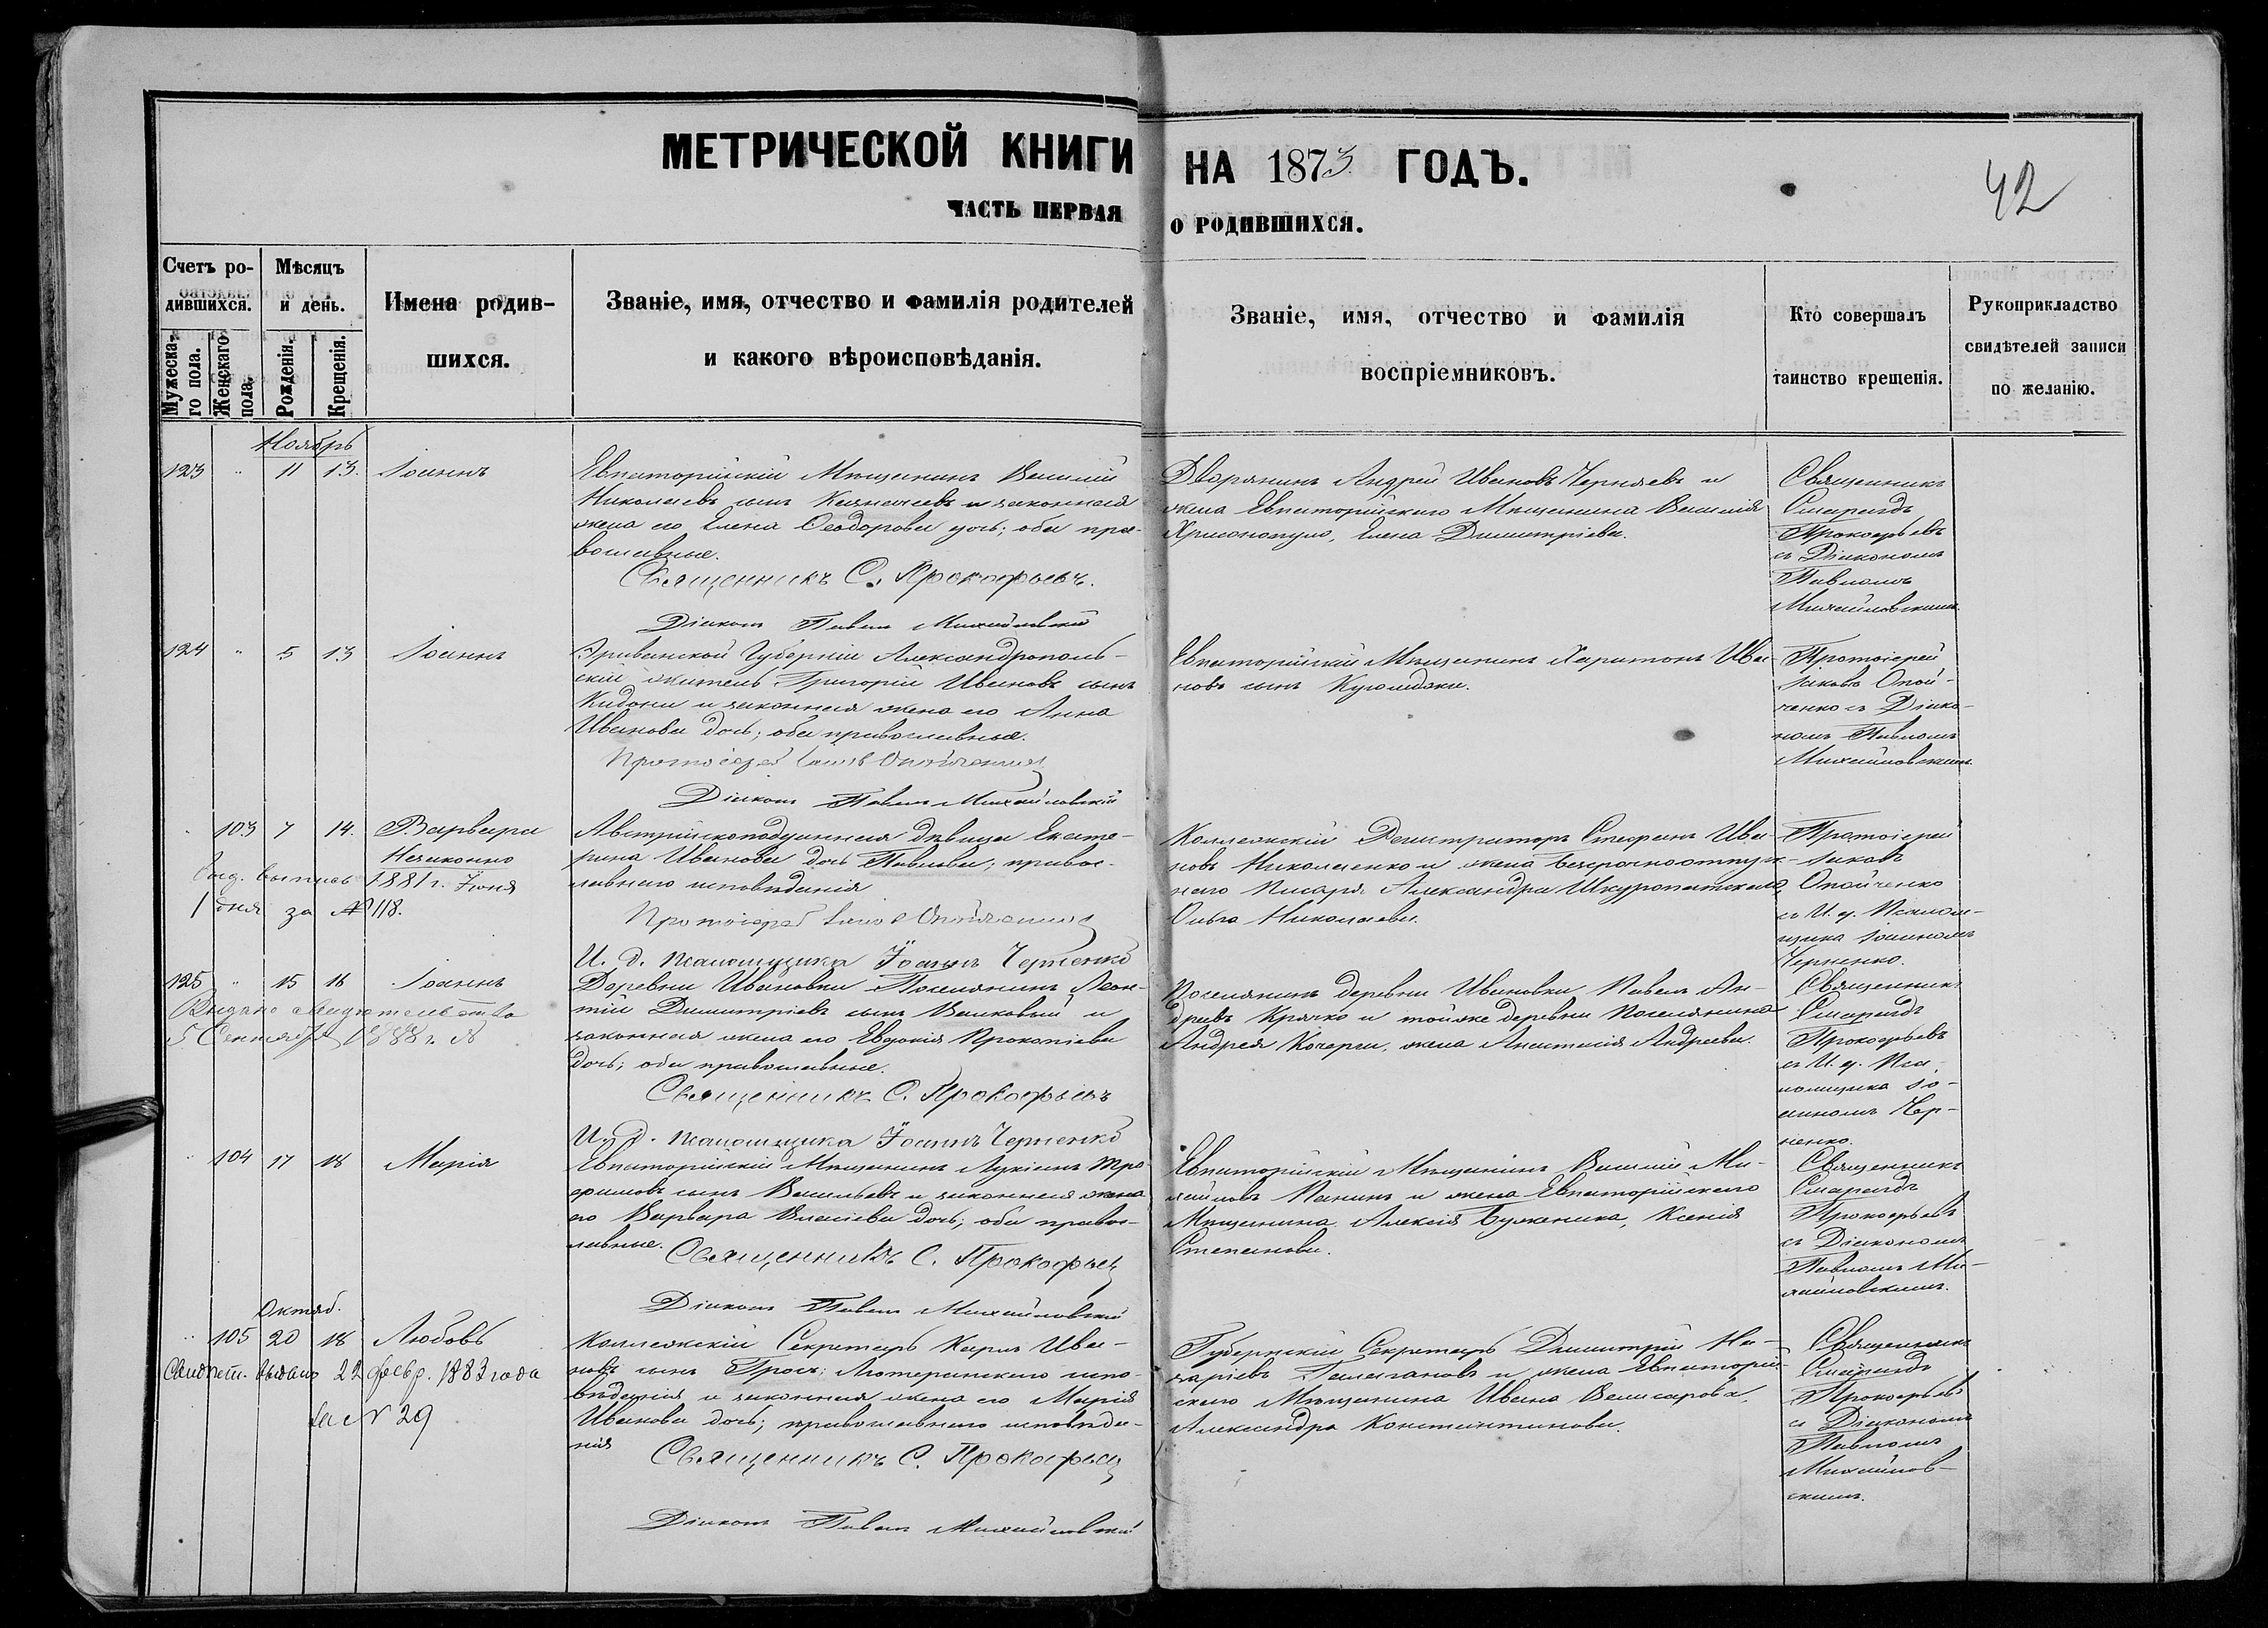 МЕТРИЧЕСКОЙ КНИГИ НА 1873 ГОДЪ.
42
ЧАСТЬ ПЕРВАЯ О РОДИВШИХСЯ.
Счетъ родившихся.
Мужеска-
го пола.
Женскаго
пола.
Мѣсяцъ
и день.
Рожденія.
Крещенія.
Имена родив-
шихся.
Званіе, имя, отчество и фамилія родителей
и какого вѣроисповѣданія.
Званіе, имя, отчество и фамилія
воспріемниковъ.
Кто совершалъ
таинство крещенія.
Рукоприкладство
свидѣтелей записи
по желанію.
Ноябрь
123 " 11 13. Іоаннъ
Евпаторійскій Мѣщанинъ Василій
Николаевъ сынъ Казначеевъ и законная
жена его Елена Ѳеодорова дочь; оба пра-
вославные.
Священникъ С. Прокофьевъ.
Діаконъ Павелъ Михайловскій
Дворянинъ Андрей Ивановъ Черняевъ и
жена Евпаторійскаго Мѣщанина Василія
Елена Димитріева.
Священникъ
Смарагдъ
Прокофьевъ
съ Діакономъ
Павломъ
Михайловскимъ.
124 " 5 13 Іоаннъ
Эриванской Губерніи Александрополь-
скій житель Григорій Ивановъ сынъ
Кидони и законная жена его Анна
Иванова дочь; оба православные.
Протоіерей Іаковъ Опойченко
Діаконъ Павелъ Михайловскій
Евпаторійскій Мѣщанинъ Харитонъ Ива-
новъ сынъ
Протоіерей
Іаковъ Опой-
ченко съ Діако-
номъ Павломъ
Михайловскимъ.
103 7 14. Варвара
Незаконно
Выд. выпись 1881 г. Іюня
1 дня за № 118.
Австрійскоподданная дѣвица Екате-
рина Иванова дочь Павлова; правос-
лавнаго исповѣданія
Протоіерей Іаковъ Опойченко
И. д. псаломщика Іоаннъ Черненко
Коллежскій Регистраторъ Стефанъ Ива-
новъ Николаенко и жена безсрочноотпуск-
наго писаря Александра Шкуропатскаго,
Ольга Николаева.
Протоіерей
Іаковъ
Опойченко
съ И. д. Псалом-
щика Іоанномъ
Черненко.
125 " 15 16 Іоаннъ
Выдано свидѣтельство
5 Сентября 1888 г. №
Деревни Ивановки Поселянинъ Леон-
тій Димитріевъ сынъ Великовый и
законная жена его Евдокія Прокопіева
дочь; оба православные.
Священникъ С. Прокофьевъ
И. д. псаломщика Іоаннъ Черненко
Поселянинъ деревни Ивановки Павелъ Ан-
дреевъ Крячко и тойже деревни Поселянина
Андрея Кочерги, жена Анастасія Андреева.
Священникъ
Смарагдъ
Прокофьевъ
съ И. д. Пса-
ломщика Іо-
анномъ Чер-
ненко.
104 17 18 Марія
Евпаторійскій Мѣщанинъ Лукіанъ Тро-
фимовъ сынъ Васильевъ и законная жена
его Варвара Власіева дочь; оба правос-
лавные.
Священникъ С. Прокофьевъ
Діаконъ Павелъ Михайловскій
Евпаторійскій Мѣщанинъ Василій Ми-
хайловъ Панинъ и жена Евпаторійскаго
Мѣщанина Алексія Буженика, Ксенія
Степанова.
Священникъ
Смарагдъ
Прокофьевъ
съ Діакономъ
Павломъ Ми-
хайловскимъ.
Октяб.
105 20 18 Любовь
Свидѣт. выдано 22 февр. 1883 года
за № 29
Коллежскій Секретарь Карлъ Ива-
новъ сынъ Гросъ; Лютеранскаго испо-
вѣданія и законная жена его Марія
Иванова дочь; православнаго исповѣда-
нія
Священникъ С. Прокофьевъ
Діаконъ Павелъ Михайловскій
Губернскій Секретарь Димитрій На-
заріевъ и жена Евпаторій-
скаго Мѣщанина Ивана Велисарова,
Александра Константинова.
Священникъ
Смарагдъ
Прокофьевъ
съ Діакономъ
Павломъ
Михайлов-
скимъ.